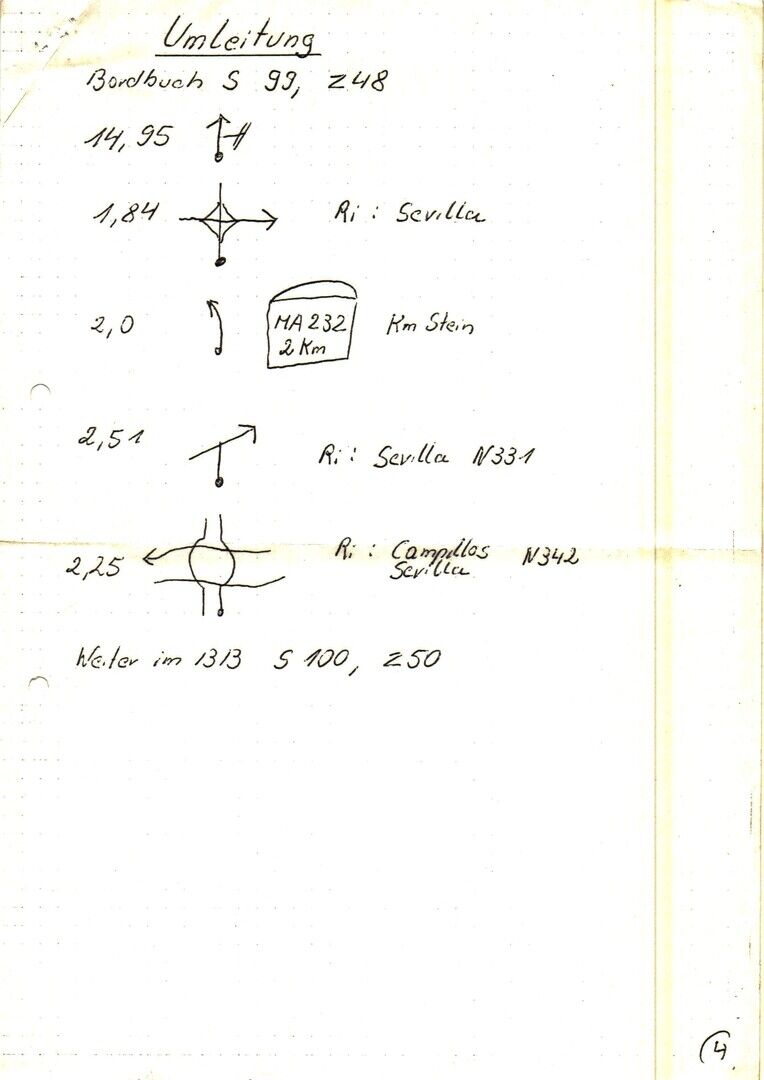 Umleitung
Bordbuch S 99, Z48
14,95
1,84 Ri: Sevilla
2,0 MA 232 Km Stein
2 Km
2,51 Ri: Sevilla N331
2,25 Ri: Campillos N342
Sevilla
Weiter im BB S 100, Z50
4